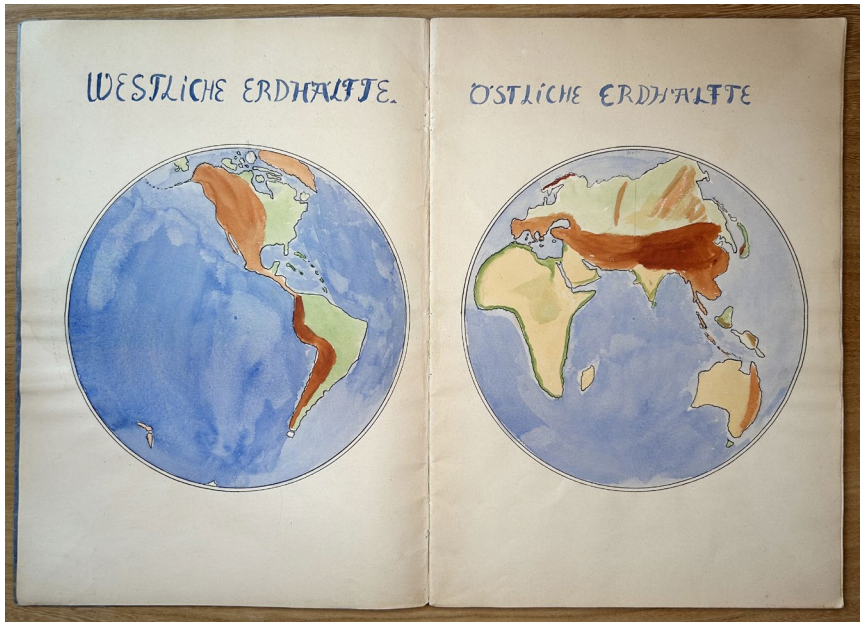 WESTLICHE ERDHÄLFTE.
ÖSTLICHE ERDHÄLFTE